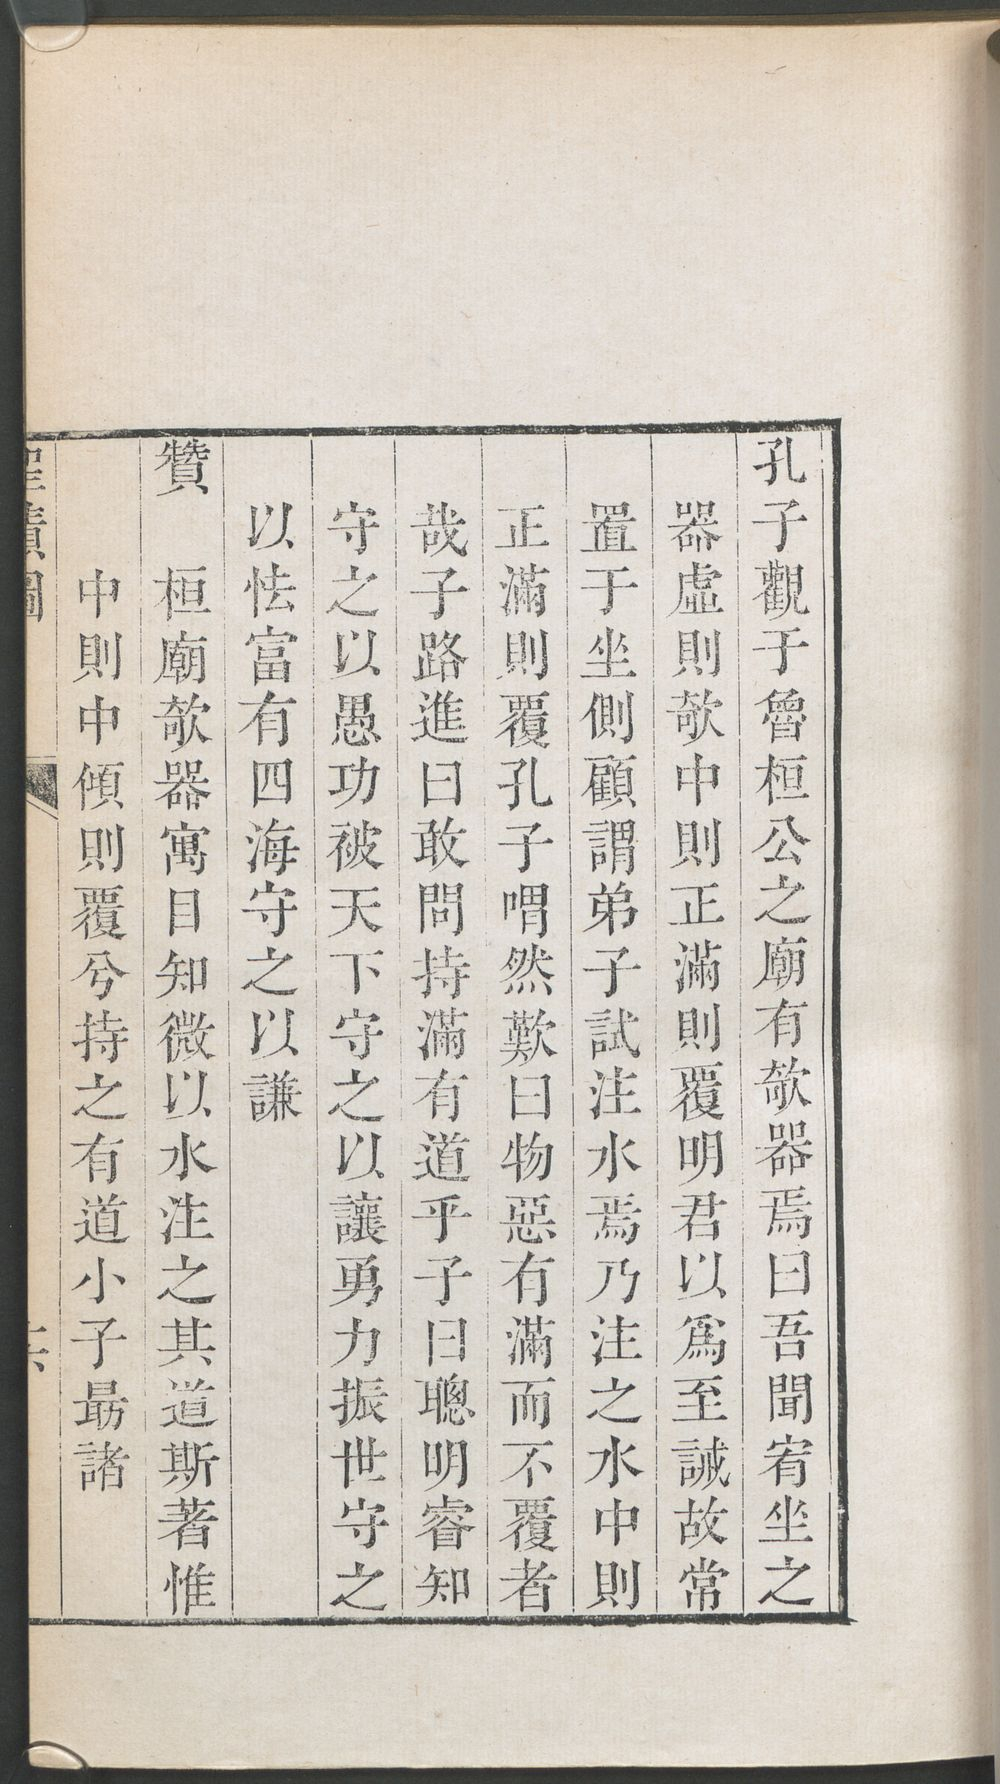 孔子觀于魯桓公之廟有欹器焉曰吾聞宥坐之
器虛則欹中則正滿則覆明君以爲至誡故常
置于坐側顧謂弟子試注水焉乃注之水中則
正滿則覆孔子喟然歎曰物惡有滿而不覆者
哉子路進曰敢問持滿有道乎子曰聰明睿知
守之以愚功被天下守之以讓勇力振世守之
以怯富有四海守之以謙
贊　桓廟欹器寓目知微以水注之其道斯著惟
中則中傾則覆兮持之有道小子勗諸
聖蹟圖